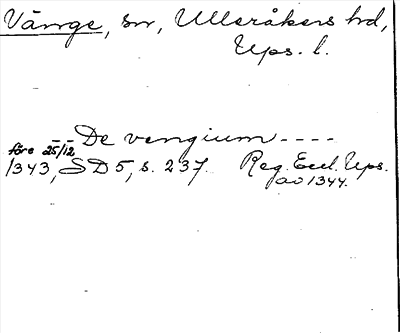 Vänge, sn, Ulleråkers hd,
Ups. l.
-- De vengium ----
före 25/12
1343, SD 5, s. 237. Reg. Eccl. Ups.
ao 1344.